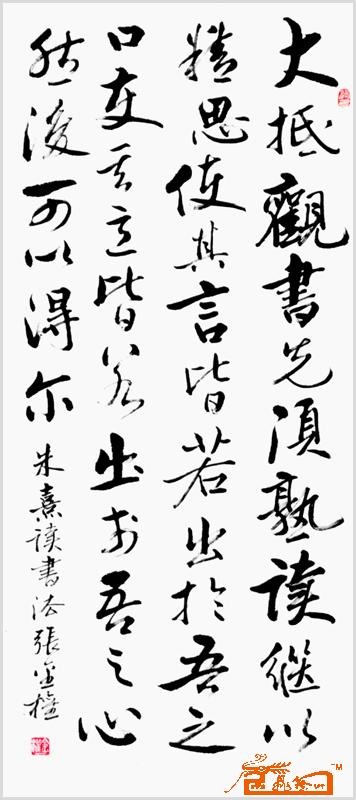 大抵觀書先須熟讀繼以
精思使其言皆若出於吾之
口使其意皆若出於吾之心
然後可以得尔
朱熹读書法張金